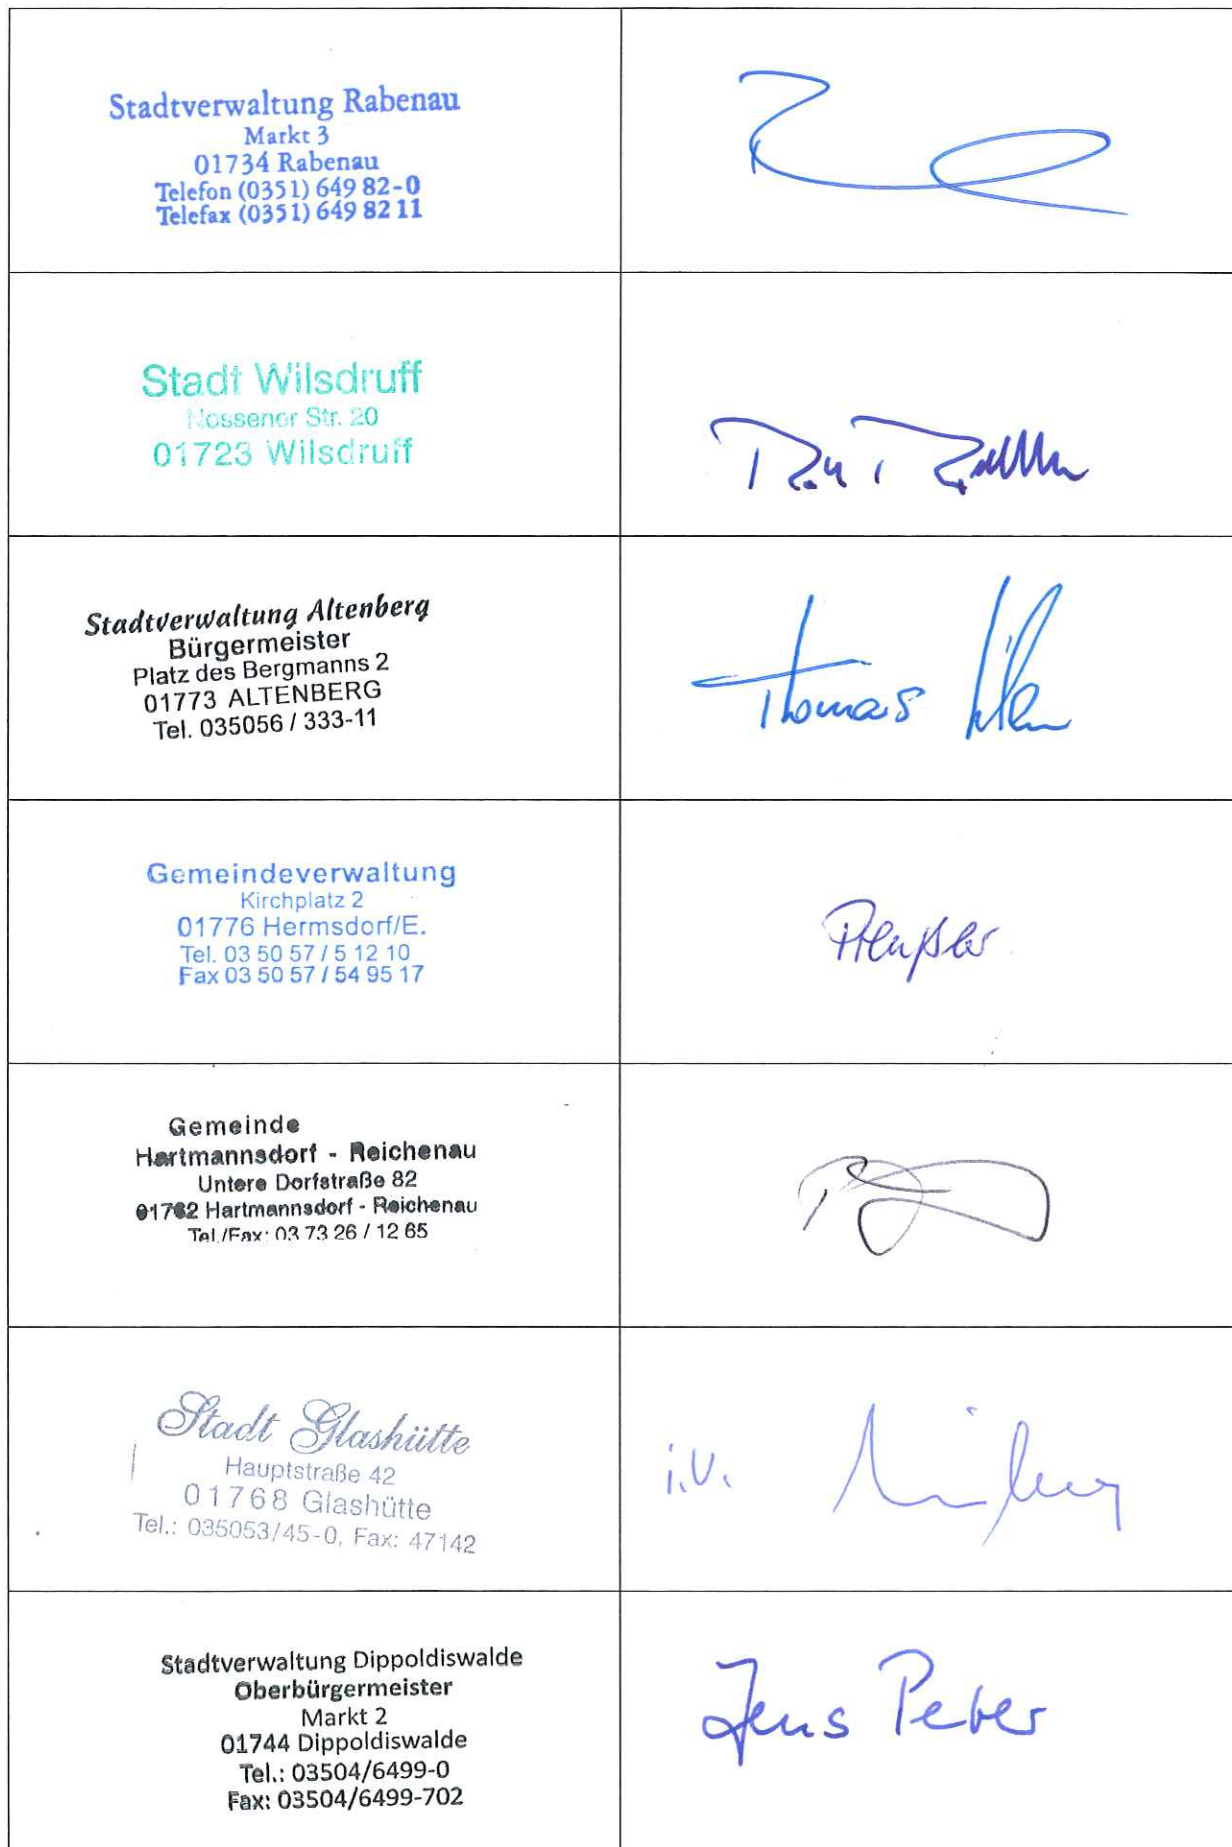 Stadtverwaltung Rabenau
Markt 3
01734 Rabenau
Telefon (0351) 649 82-0
Telefax (0351) 649 82 11
Stadt Wilsdruff
Nossener Str. 20
01723 Wilsdruff
Stadtverwaltung Altenberg
Bürgermeister
Platz des Bergmanns 2
01773 ALTENBERG
Tel. 035056 / 333-11
Thomas
Gemeindeverwaltung
Kirchplatz 2
01776 Hermsdorf/E.
Tel. 03 50 57 / 5 12 10
Fax 03 50 57 / 54 95 17
Gemeinde
Hartmannsdorf - Reichenau
Untere Dorfstraße 82
01762 Hartmannsdorf - Reichenau
Tel./Fax: 03 73 26 / 12 65
Stadt Glashütte
Hauptstraße 42
01768 Glashütte
Tel.: 035053/45-0, Fax: 47142
i.V.
Stadtverwaltung Dippoldiswalde
Oberbürgermeister
Markt 2
01744 Dippoldiswalde
Tel.: 03504/6499-0
Fax: 03504/6499-702
Jens Peter